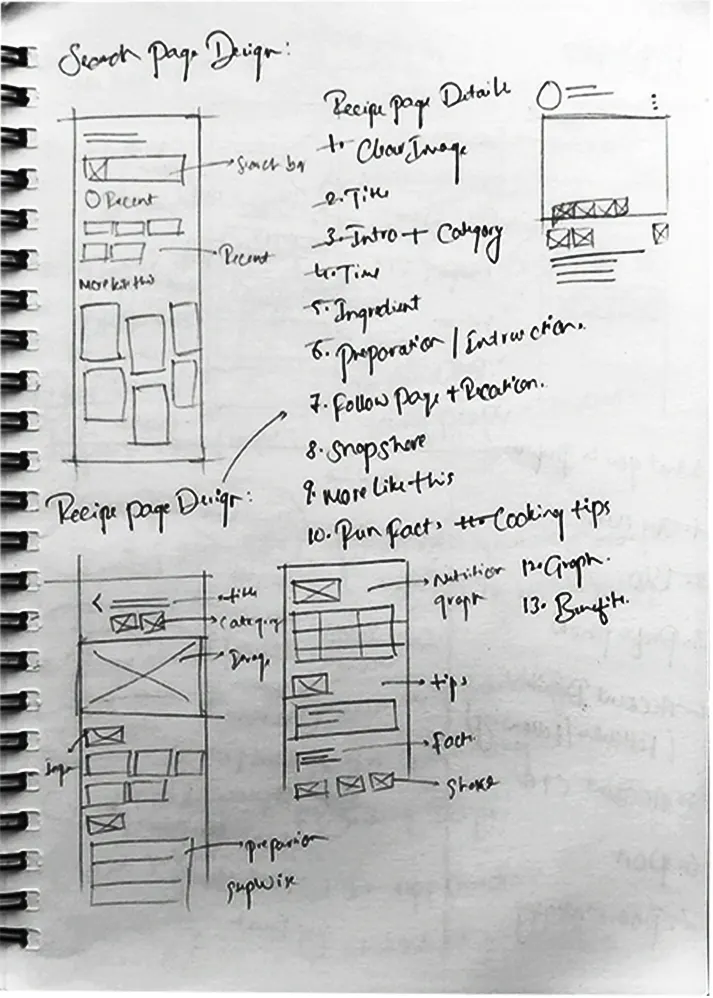 Search page Design:
Search ba
Recent
Recent
More like this
Recipe page Details
1. Clear Image
2. Title
3. Intro + Category
4. Time
5. Ingredient
6. Preparation / Intruction.
7. Follow page +
8. Snapshare
9. More Like this
10. Fun Facts Cooking tips
12. Graph.
13. Benefits.
Recipe page Design:
title
Category
Image
preparion
stepwise
Nutrition
graph
tips
fact.
share